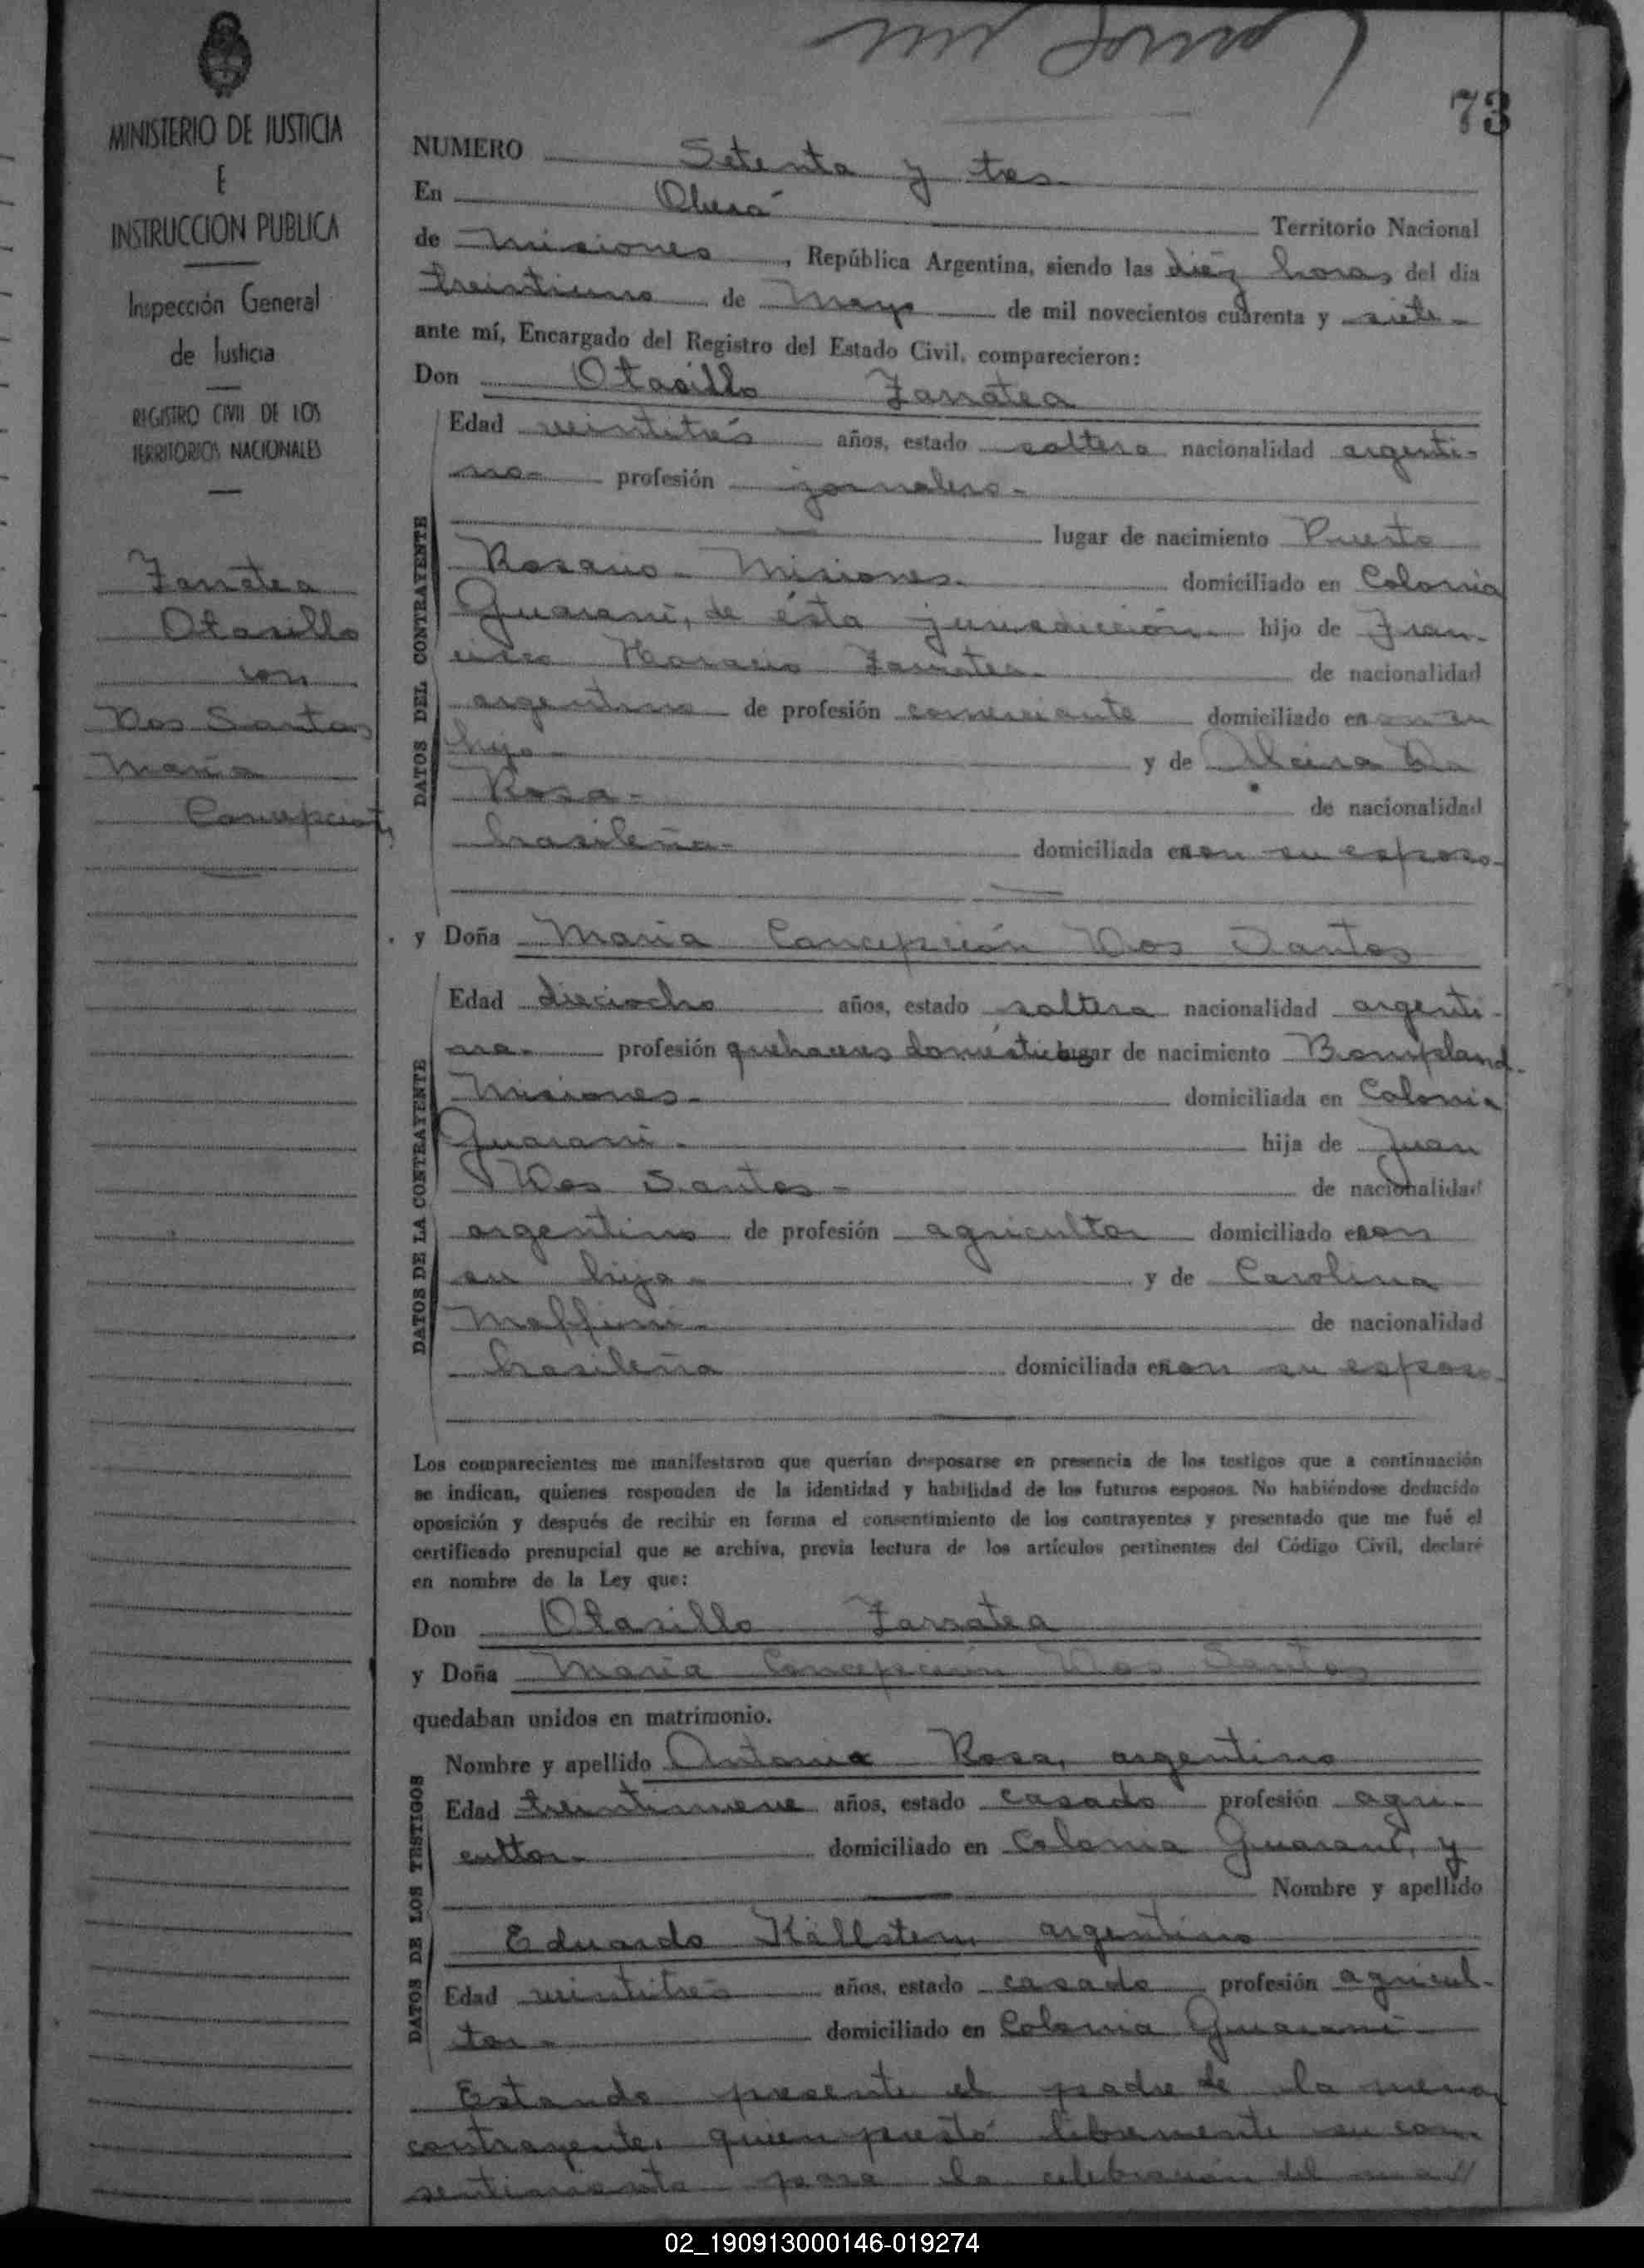 73
MINISTERIO DE JUSTICIA
E
INSTRUCCION PUBLICA
Inspección General
de Justicia
REGISTRO CIVIL DE LOS
TERRITORIOS NACIONALES
Zarratea
Otasillo
con
Dos Santos
María
Concepción
NUMERO Setenta y tres
En Oberá Territorio Nacional
de Misiones, República Argentina, siendo las diez horas del día
treintiuno de Mayo de mil novecientos cuarenta y siete-
ante mí, Encargado del Registro del Estado Civil, comparecieron:
Don Otasillo Zarratea
DATOS DEL CONTRAYENTE
Edad veintitrés años, estado soltero nacionalidad argenti-
no- profesión jornalero-
lugar de nacimiento Puerto
Rosario- Misiones- domiciliado en Colonia
Guaraní, de ésta jurisdicción- hijo de Fran-
cisco Horacio Zarratea- de nacionalidad
argentino de profesión comerciante domiciliado en con su
hijo- y de Alcira Da
Rosa- de nacionalidad
brasileña- domiciliada en con su esposo-
y Doña María Concepción Dos Santos
DATOS DE LA CONTRAYENTE
Edad dieciocho años, estado soltera nacionalidad argenti-
na- profesión quehaceres domésticos lugar de nacimiento Bompland-
Misiones- domiciliada en Colonia
Guaraní- hija de Juan
Dos Santos- de nacionalidad
argentino de profesión agricultor domiciliado en con
su hija- y de Carolina
Maffini- de nacionalidad
brasileña domiciliada en con su esposo-
Los comparecientes me manifestaron que querían desposarse en presencia de los testigos que a continuación
se indican, quienes responden de la identidad y habilidad de los futuros esposos. No habiéndose deducido
oposición y después de recibir en forma el consentimiento de los contrayentes y presentado que me fué el
certificado prenupcial que se archiva, previa lectura de los artículos pertinentes del Código Civil, declaré
en nombre de la Ley que:
Don Otasillo Zarratea
y Doña María Concepción Dos Santos
quedaban unidos en matrimonio.
DATOS DE LOS TESTIGOS
Nombre y apellido Antonio Rosa, argentino
Edad treintinueve años, estado casado profesión agri-
cultor- domiciliado en Colonia Guaraní, y
Nombre y apellido
Eduardo Källsten, argentino
Edad veintitrés años, estado casado profesión agricul-
tor- domiciliado en Colonia Guaraní-
Estando presente el padre de la menor
contrayente, quien prestó libremente su con-
sentimiento para la celebración del ma//
02_190913000146-019274